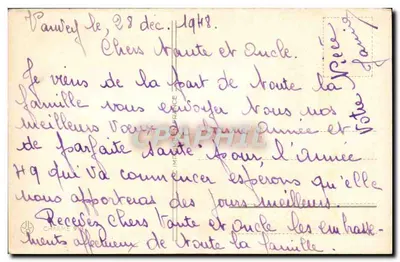 le, 28 dec. 1948.
Chers Tante et Oncle.
Je viens de la part de toute la
famille vous envoyer tous nos
meilleurs Vœux de bonne année et
de parfaite santé. pour, l'année
49 qui va commencer esperons qu'elle
nous apporteras des jours meilleurs.
Recevez Chers Tante et oncle les embrasse-
ments affectueux de toute la famille.
Votre Nièce
CPAPHIL